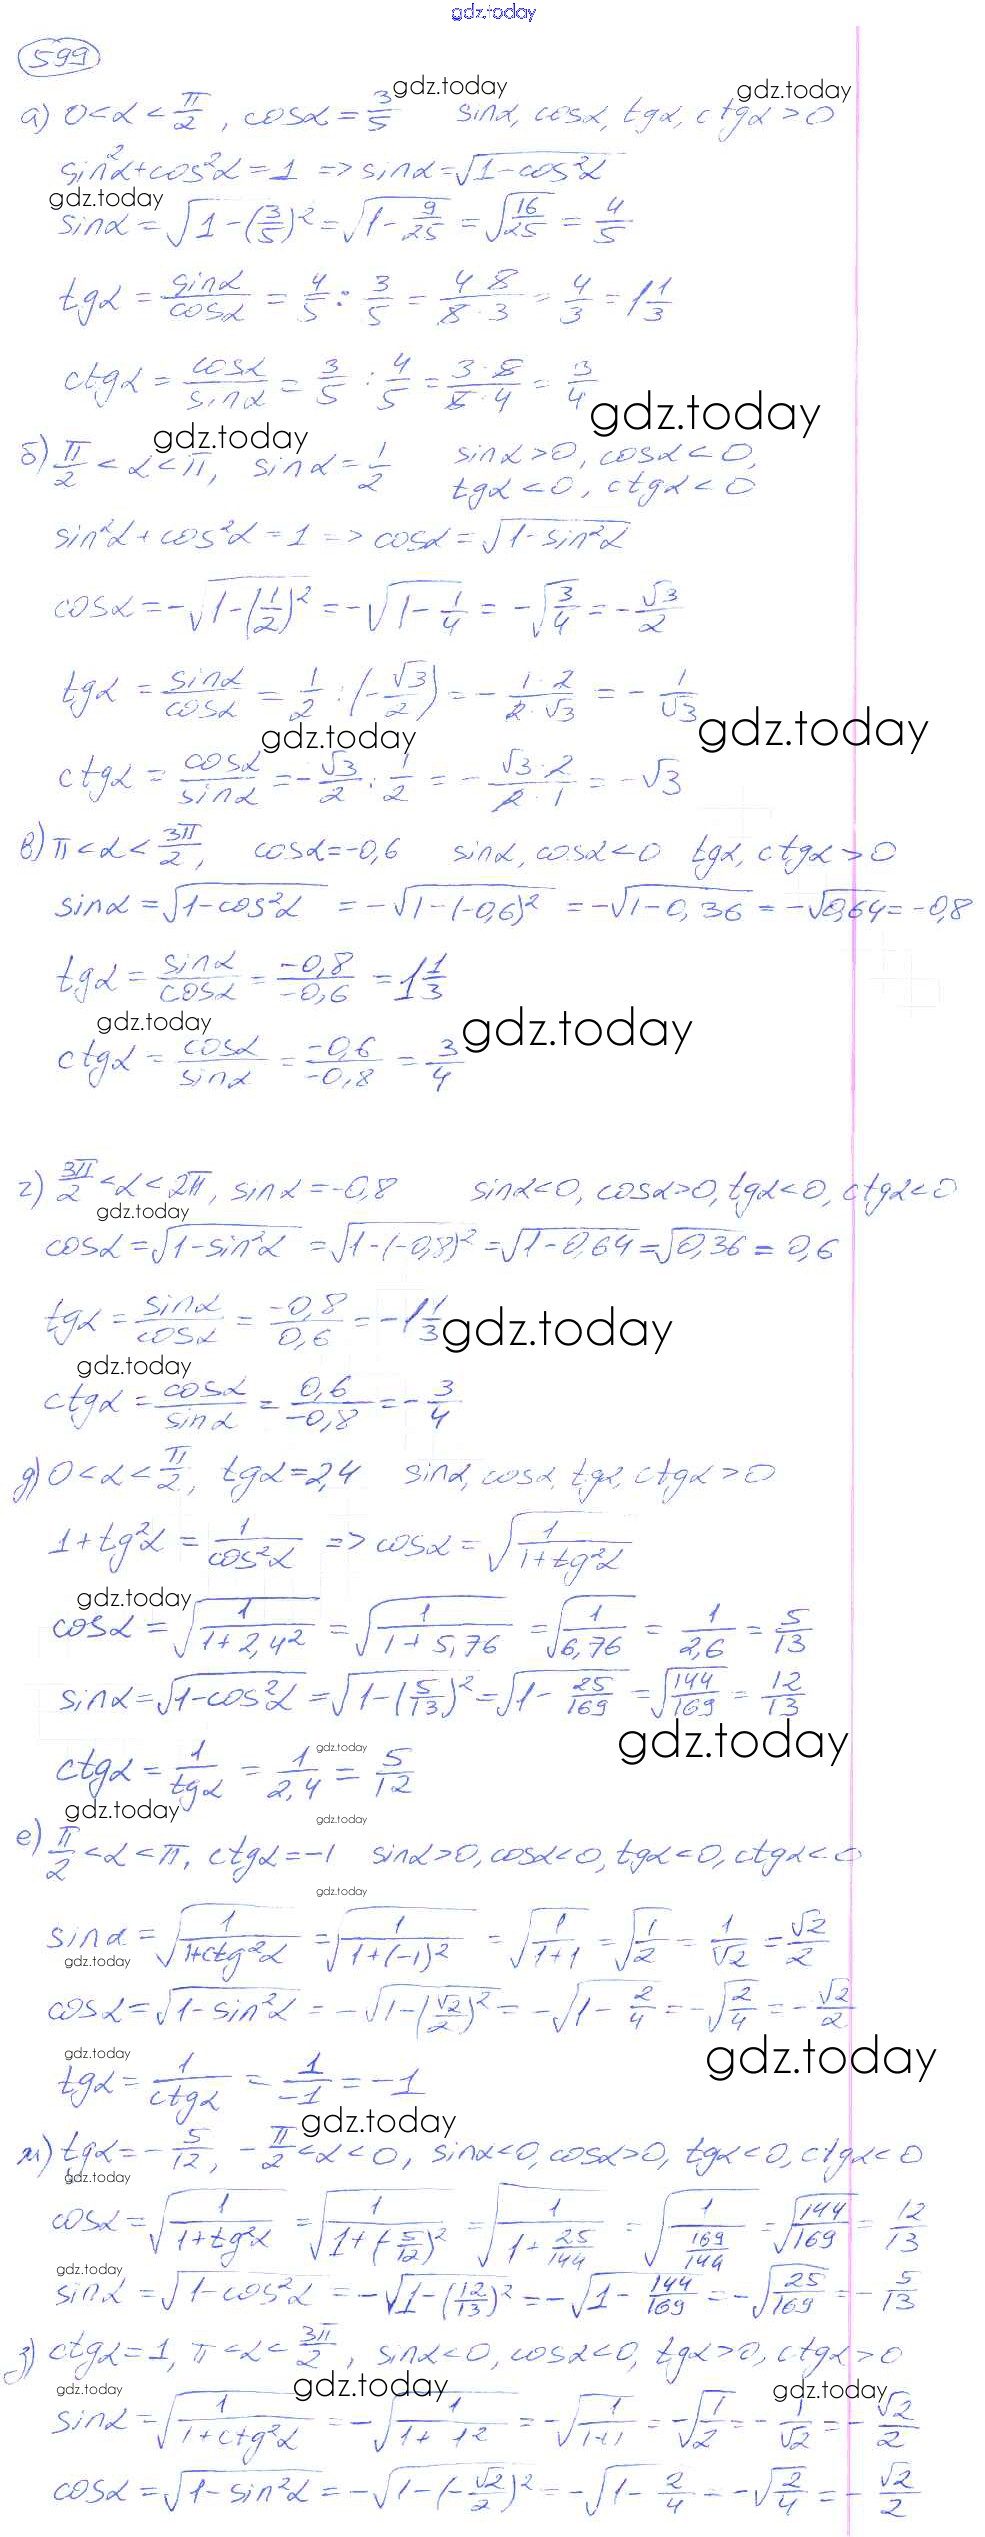 gdz.today
599
а) 0 < α < π/2, cosα = 3/5 sinα, cosα, tgα, ctgα > 0
gdz.today gdz.today
sin²α + cos²α = 1 => sinα = √(1 - cos²α)
gdz.today
sinα = √(1 - (3/5)²) = √(1 - 9/25) = √(16/25) = 4/5
tgα = sinα/cosα = 4/5 : 3/5 = (4·5)/(5·3) = 4/3 = 1 1/3
ctgα = cosα/sinα = 3/5 : 4/5 = (3·5)/(5·4) = 3/4
gdz.today
gdz.today
б) π/2 < α < π, sinα = 1/2 sinα > 0, cosα < 0,
tgα < 0, ctgα < 0
sin²α + cos²α = 1 => cosα = √(1 - sin²α)
cosα = -√(1 - (1/2)²) = -√(1 - 1/4) = -√(3/4) = -√3/2
tgα = sinα/cosα = 1/2 : (-√3/2) = -(1·2)/(2·√3) = -1/√3
gdz.today
gdz.today
ctgα = cosα/sinα = -√3/2 : 1/2 = -(√3·2)/(2·1) = -√3
в) π < α < 3π/2, cosα = -0,6 sinα, cosα < 0 tgα, ctgα > 0
sinα = √(1 - cos²α) = -√(1 - (-0,6)²) = -√(1 - 0,36) = -√0,64 = -0,8
tgα = sinα/cosα = -0,8/-0,6 = 1 1/3
gdz.today gdz.today
ctgα = cosα/sinα = -0,6/-0,8 = 3/4
г) 3π/2 < α < 2π, sinα = -0,8 sinα < 0, cosα > 0, tgα < 0, ctgα < 0
gdz.today
cosα = √(1 - sin²α) = √(1 - (-0,8)²) = √(1 - 0,64) = √0,36 = 0,6
tgα = sinα/cosα = -0,8/0,6 = -1 1/3
gdz.today
gdz.today
ctgα = cosα/sinα = 0,6/-0,8 = -3/4
д) 0 < α < π/2, tgα = 2,4 sinα, cosα, tgα, ctgα > 0
1 + tg²α = 1/cos²α => cosα = √(1/(1 + tg²α))
gdz.today
cosα = √(1/(1 + 2,4²)) = √(1/(1 + 5,76)) = √(1/6,76) = 1/2,6 = 5/13
sinα = √(1 - cos²α) = √(1 - (5/13)²) = √(1 - 25/169) = √(144/169) = 12/13
gdz.today
gdz.today
ctgα = 1/tgα = 1/2,4 = 5/12
gdz.today gdz.today
е) π/2 < α < π, ctgα = -1 sinα > 0, cosα < 0, tgα < 0, ctgα < 0
gdz.today
sinα = √(1/(1 + ctg²α)) = √(1/(1 + (-1)²)) = √(1/(1 + 1)) = √(1/2) = 1/√2 = √2/2
gdz.today
cosα = √(1 - sin²α) = -√(1 - (√2/2)²) = -√(1 - 2/4) = -√(2/4) = -√2/2
gdz.today gdz.today
tgα = 1/ctgα = 1/-1 = -1
gdz.today
ж) tgα = -5/12, -π/2 < α < 0, sinα < 0, cosα > 0, tgα < 0, ctgα < 0
gdz.today
cosα = √(1/(1 + tg²α)) = √(1/(1 + (-5/12)²)) = √(1/(1 + 25/144)) = √(1/(169/144)) = √(144/169) = 12/13
gdz.today
sinα = √(1 - cos²α) = -√(1 - (12/13)²) = -√(1 - 144/169) = -√(25/169) = -5/13
з) ctgα = 1, π < α < 3π/2, sinα < 0, cosα < 0, tgα > 0, ctgα > 0
gdz.today gdz.today gdz.today
sinα = √(1/(1 + ctg²α)) = -√(1/(1 + 1²)) = -√(1/(1+1)) = -√(1/2) = -1/√2 = -√2/2
cosα = √(1 - sin²α) = -√(1 - (-√2/2)²) = -√(1 - 2/4) = -√(2/4) = -√2/2